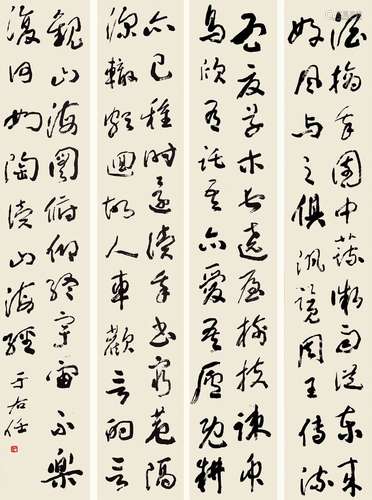 酒摘我園中蔬微雨從東來
好風與之俱汎覽周王傳流
孟夏草木長遶屋樹扶疎眾
鳥欣有託吾亦愛吾廬既耕
亦已種時還讀我書窮巷隔
深轍頗迴故人車歡言酌春
觀山海圖俯仰終宇宙不樂
復何如陶讀山海經 于右任